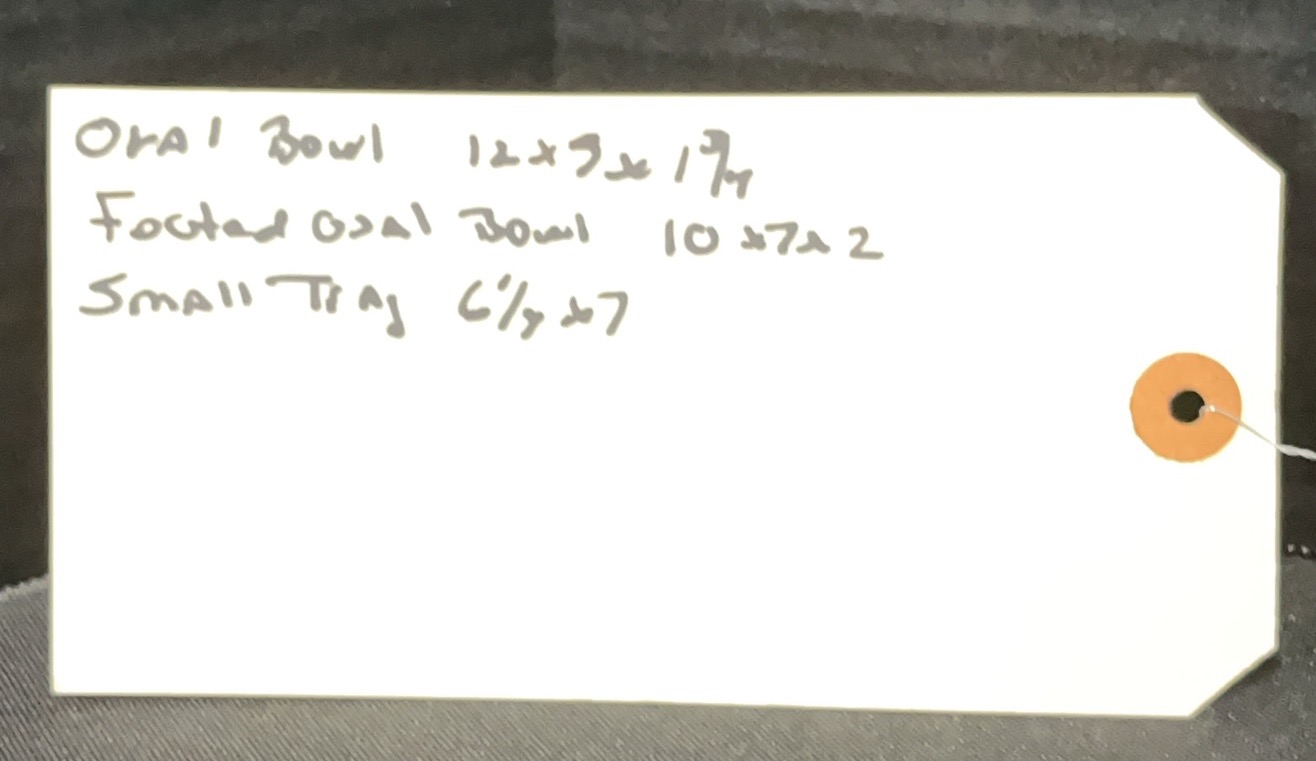 Oval Bowl 12 x 9 x 1 3/4
Footed oval Bowl 10 x 7 x 2
Small Tray 6 1/4 x 7